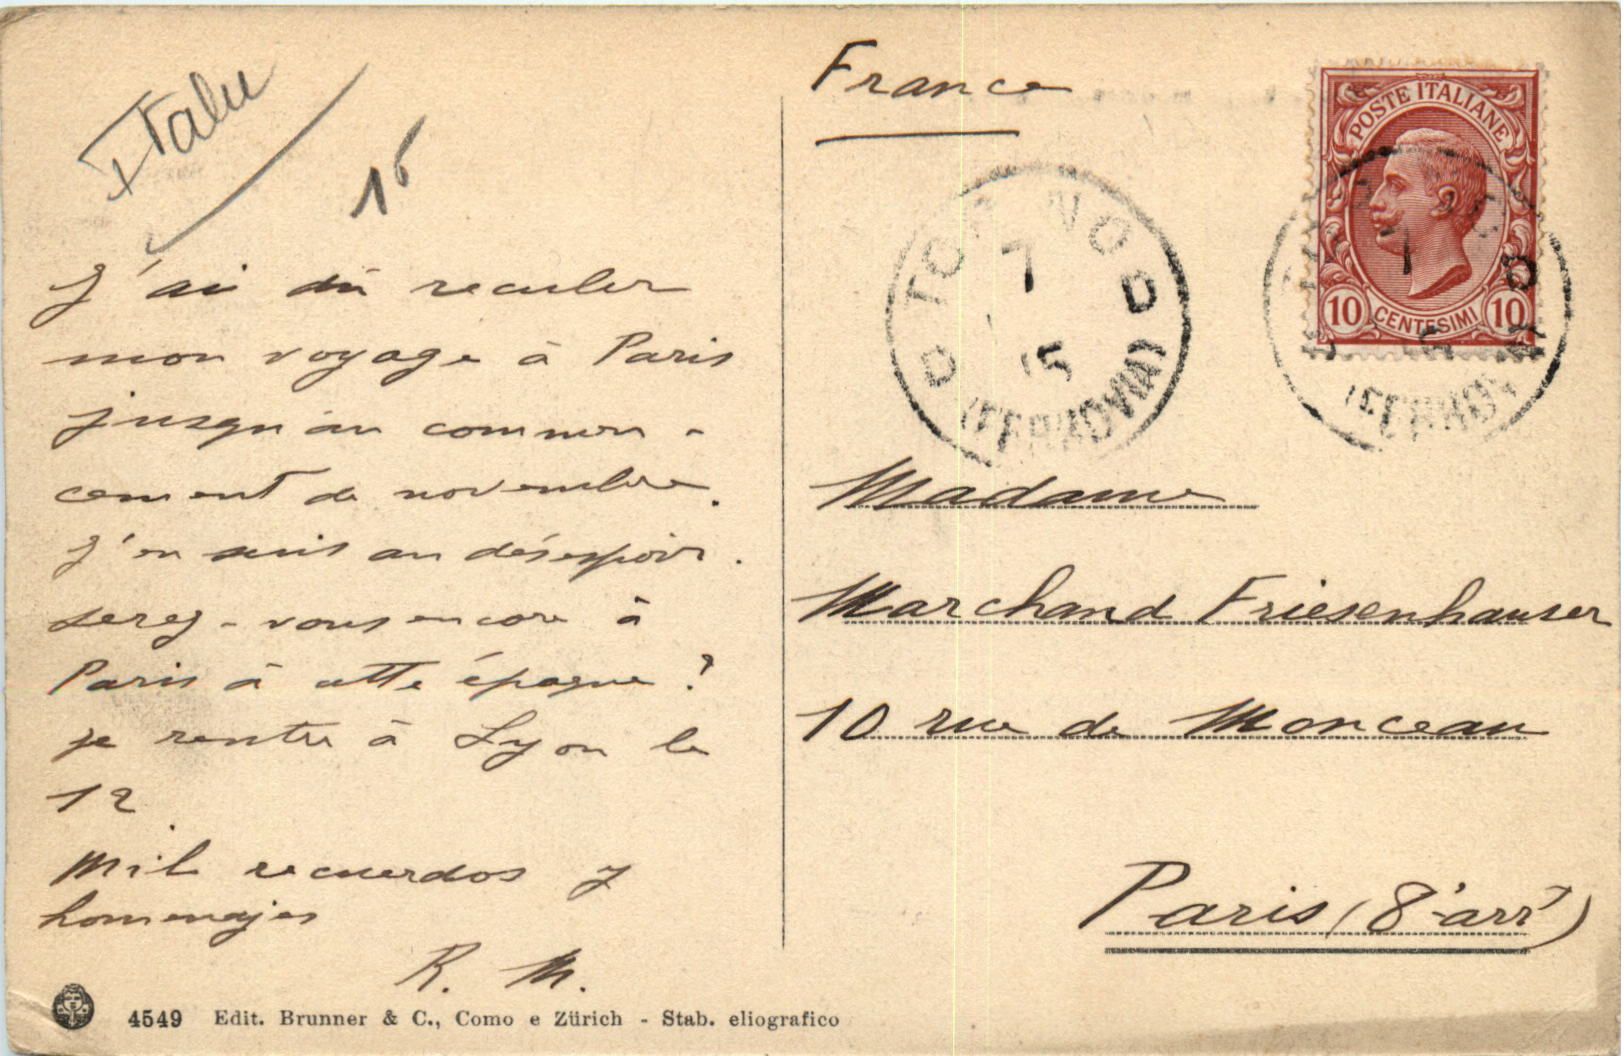 Italie
16
J'ai dû reculer
mon voyage à Paris
jusqu'au commen-
cement de novembre.
J'en suis au désespoir.
serez-vous encore à
Paris à cette époque?
je rentre à Lyon le
12
Mil recuerdos y
homenajes
R. M.
4549 Edit. Brunner & C., Como e Zürich - Stab. eliografico
France
POSTE ITALIANE
10 CENTESIMI 10
TORINO
7
D D
15
(FERROVIA)
(FERROVIA)
Madame
Marchand Friesenhauser
10 rue de Monceau
Paris (8'arrt)